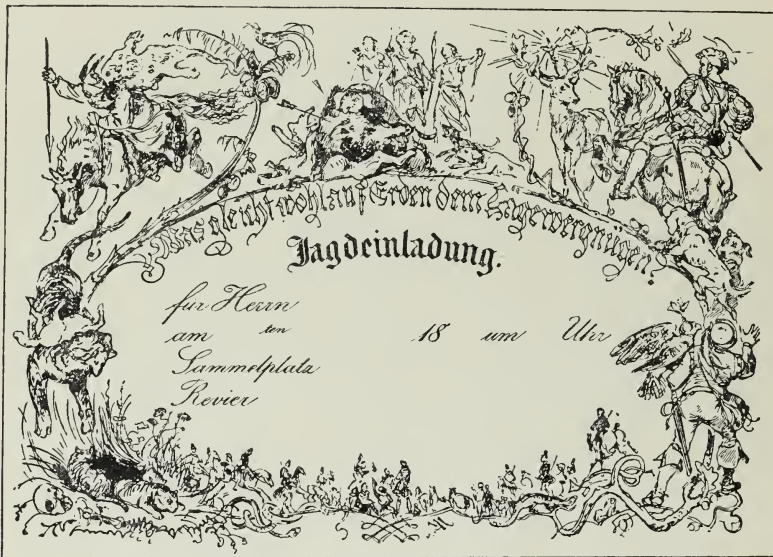 Was gleicht wohl auf Erden dem Jägervergnügen?
Jagdeinladung.
für Herrn
am ten 18 um Uhr
Sammelplatz
Revier